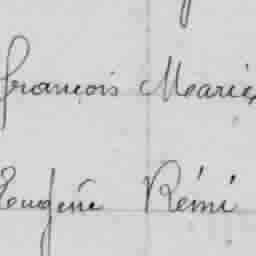 François Marie
Eugène Rémi